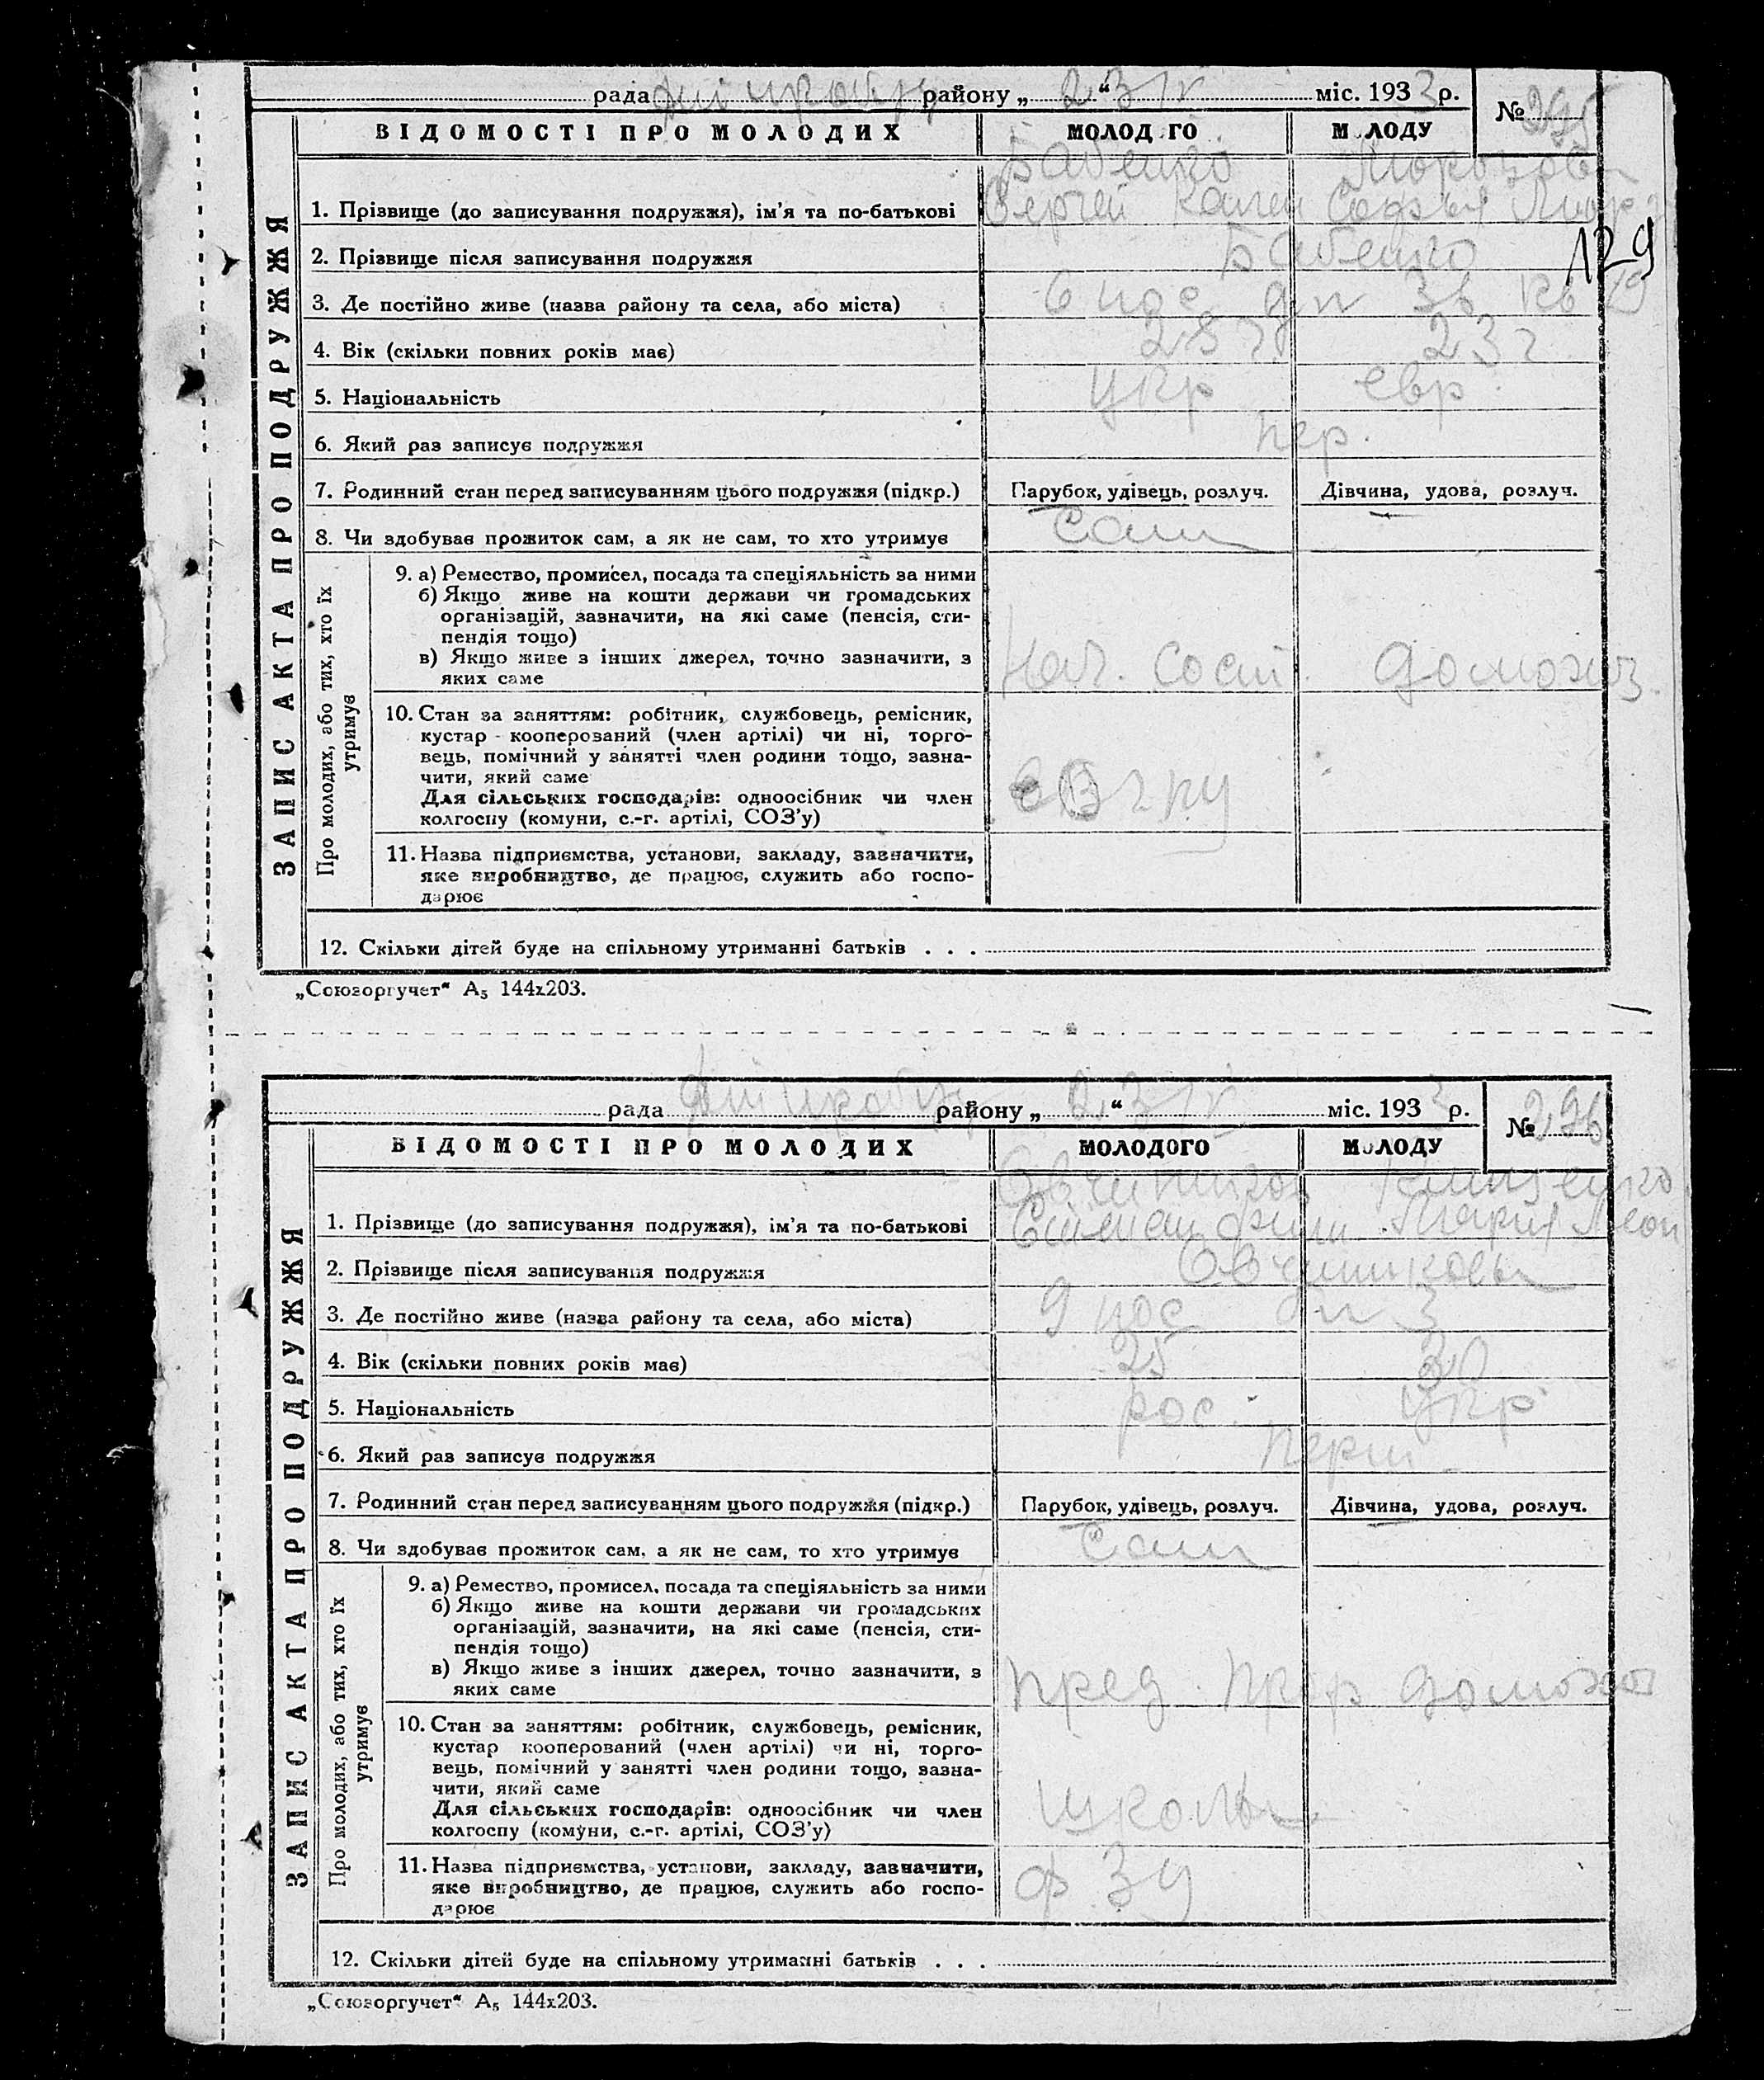 рада району „ 23 “ IV міс. 1933 р. № 295
ВІДОМОСТІ ПРО МОЛОДИХ МОЛОД ГО М ЛОДУ
129
ЗАПИС АКТА ПРО ПОДРУЖЖЯ
Бабенко Морозова
1. Прізвище (до записування подружжя), ім’я та по-батькові Сергей Софья
2. Прізвище після записування подружжя Бабенко
3. Де постійно живе (назва району та села, або міста) 6 пос
4. Вік (скільки повних років має) 28 г 23 г
5. Національність укр евр.
6. Який раз записує подружжя пер.
7. Родинний стан перед записуванням цього подружжя (підкр.) Парубок, удівець, розлуч. Дівчина, удова, розлуч.
8. Чи здобуває прожиток сам, а як не сам, то хто утримує Сам
Про молодих, або тих, хто їх утримує
9. а) Ремество, промисел, посада та спеціяльність за ними
б) Якщо живе на кошти держави чи громадських
організацій, зазначити, на які саме (пенсія, сти-
пендія тощо)
в) Якщо живе з інших джерел, точно зазначити, з
яких саме Нач. сост. домохоз.
10. Стан за заняттям: робітник, службовець, ремісник,
кустар - кооперований (член артілі) чи ні, торго-
вець, помічний у занятті член родини тощо, зазна-
чити, який саме
Для сільських господарів: одноосібник чи член
колгоспу (комуни, с.-г. артілі, СОЗ’у)
11. Назва підприємства, установи, закладу, зазначити,
яке виробництво, де працює, служить або госпо-
дарює
12. Скільки дітей буде на спільному утриманні батьків . . .
„Союзоргучет“ А₅ 144х203.
рада району „ 23 “ IV міс. 1933 р. № 296
ВІДОМОСТІ ПРО МОЛОДИХ МОЛОДОГО МОЛОДУ
ЗАПИС АКТА ПРО ПОДРУЖЖЯ
Овчинников
1. Прізвище (до записування подружжя), ім’я та по-батькові Мария
2. Прізвище після записування подружжя Овчинниковы
3. Де постійно живе (назва району та села, або міста) 9 пос 3
4. Вік (скільки повних років має) 25 30
5. Національність рос. укр
6. Який раз записує подружжя перш
7. Родинний стан перед записуванням цього подружжя (підкр.) Парубок, удівець, розлуч. Дівчина, удова, розлуч.
8. Чи здобуває прожиток сам, а як не сам, то хто утримує Сам
Про молодих, або тих, хто їх утримує
9. а) Ремество, промисел, посада та спеціяльність за ними
б) Якщо живе на кошти держави чи громадських
організацій, зазначити, на які саме (пенсія, сти-
пендія тощо)
в) Якщо живе з інших джерел, точно зазначити, з
яких саме пред. домохоз
10. Стан за заняттям: робітник, службовець, ремісник,
кустар кооперований (член артілі) чи ні, торго-
вець, помічний у занятті член родини тощо, зазна-
чити, який саме
Для сільських господарів: одноосібник чи член школы
колгоспу (комуни, с.-г. артілі, СОЗ’у)
11. Назва підприємства, установи, закладу, зазначити,
яке виробництво, де працює, служить або госпо- ФЗУ
дарює
12. Скільки дітей буде на спільному утриманні батьків . . .
„Союзоргучет“ А₅ 144х203.